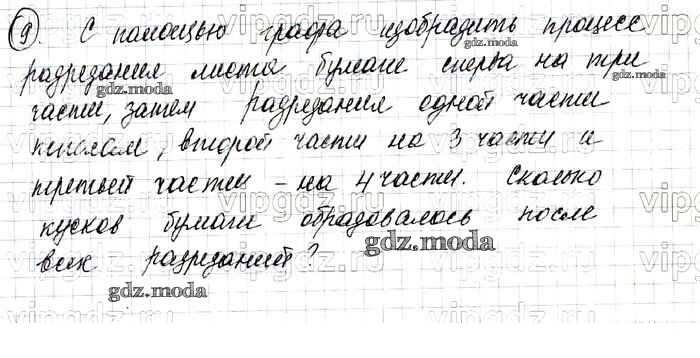 9. С помощью графа изобразить процесс
разрезания листа бумаги сперва на три
части, затем разрезания одной части
пополам, второй части на 3 части и
третьей части – на 4 части. Сколько
кусков бумаги образовалось после
всех разрезаний?
gdz.moda
gdz.moda
gdz.moda
gdz.moda
gdz.moda
vipgdz.ru